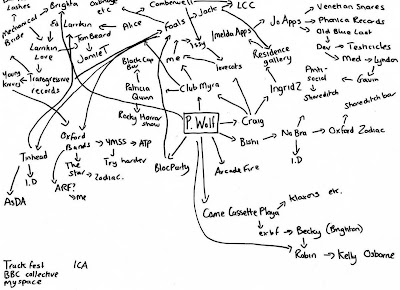 Lashes
Mechanical
Bride
Brighton
etc
Camberwell
Foals
Jack
LCC
Jo Apps
Venetian Snares
Phonica Records
Old Blue Last
Dev
Testicles
Med
Lyndon
Gavin
Anti-
social
Shoreditch
Shoreditch bar
Ed Larrikin
Alice
Tom Beard
Jamie T
Larrikin
Love
Transgressive
records
Young
knives
me
Issy
Imelda Apps
lovecats
Residence
gallery
Black Cap
Bar
Patricia
Quinn
Rocky Horror
show
Club Myra
Ingrid Z
P. Wolf
Craig
Bishi
NoBra
Oxford Zodiac
I.D
Oxford
Bands
YMSS
ATP
Try harder
The
star
Zodiac.
Tinhead
I.D
ASDA
ARF?
me
Bloc Party
Arcade Fire
Came Cassette Playa
Klaxons etc.
ex bf
Becky (Brighton)
Robin
Kelly Osborne
Truck fest
ICA
BBC collective
myspace